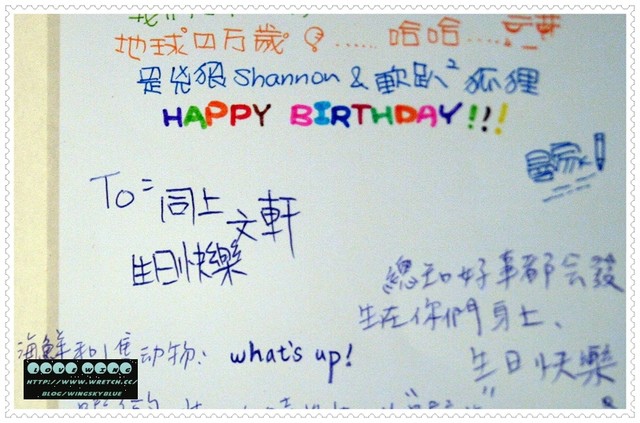 地球四万歲。……哈哈……
是兇狠Shannon & 軟趴²狐狸
HAPPY BIRTHDAY!!!
To: 同上
文軒
生日快樂
總知好事都会發
生在你們身上、
生日快樂
海鮮和 动物: what's up!
HTTP://WWW.WRETCH.CC/
BLOG/WINGSKYBLUE